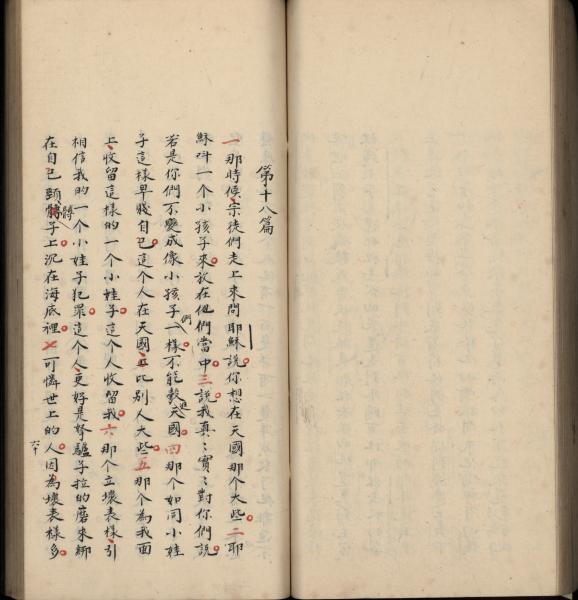 第十八篇
一那時候宗徒們走上來問耶穌說你想在天國那个大些二耶
穌呌一个小孩子來放在他們當中三說我真〻實〻對你們說
若是你們不變成像小孩子們一樣不能彀進天國四那个如同小娃
子這樣卑賤自己這個人在天國又比別人大些五那个為我面
上收留這樣的一个小娃子這个人收留我六那个立壞表樣引
相信我的一个小娃子犯罪這个人更好是弩驢子拉的磨來綁
在自己頸髆子上沉在海底裡七可憐世上的人因為壞表樣多
六十